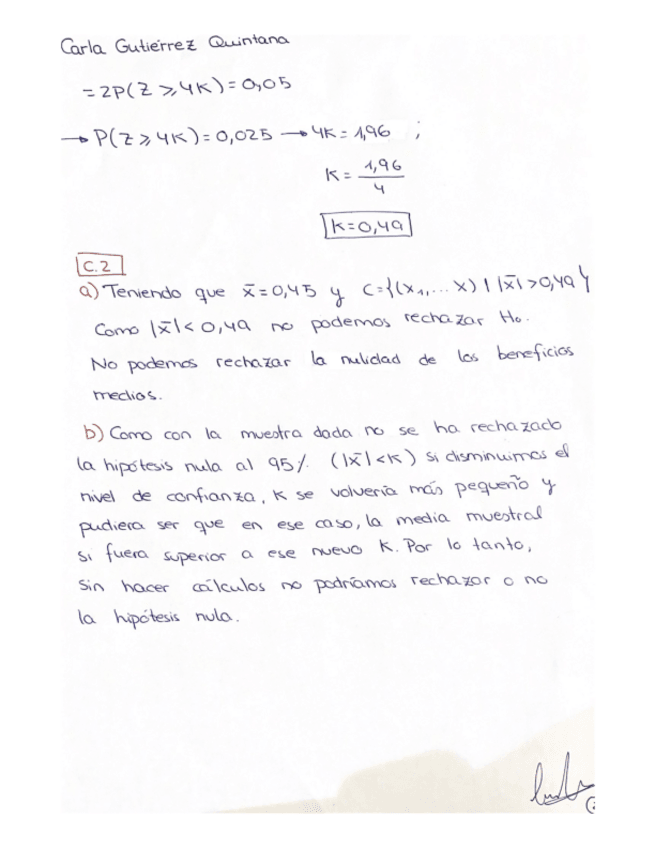 Carla Gutiérrez Quintana
= 2P(Z ⩾ 4K) = 0,05
→ P(Z ⩾ 4K) = 0,025 → 4K = 1,96 ;
K = 1,96 / 4
K = 0,49
C.2
a) Teniendo que x̄ = 0,45 y C = {(x₁,... x) | |x̄| > 0,49}
Como |x̄| < 0,49 no podemos rechazar H₀.
No podemos rechazar la nulidad de los beneficios
medios.
b) Como con la muestra dada no se ha rechazado
la hipótesis nula al 95% (|x̄| < K) si disminuimos el
nivel de confianza, K se volvería más pequeño y
pudiera ser que en ese caso, la media muestral
si fuera superior a ese nuevo K. Por lo tanto,
sin hacer cálculos no podríamos rechazar o no
la hipótesis nula.